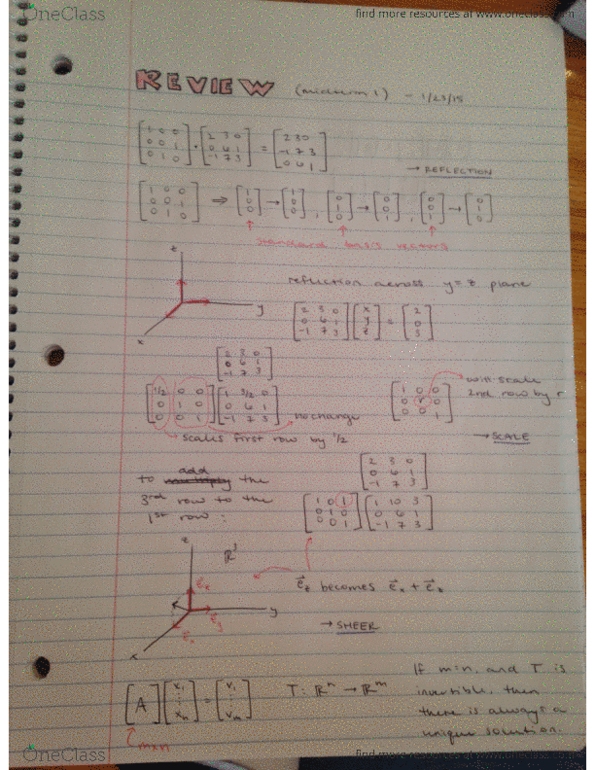 OneClass find more resources at www.oneclass.com
REVIEW (midterm 1) - 1/23/15
[1 0 0 [2 3 0 [2 3 0
0 0 1 · 0 6 1 = -1 7 3
0 1 0] -1 7 3] 0 6 1]
→ REFLECTION
[1 0 0
0 0 1
0 1 0] ⇒ [1 0 0] → [1 0 0], [0 1 0] → [0 0 1], [0 0 1] → [0 1 0]
standard basis vectors
z
y
x
reflection across y=z plane
[2 3 0 [x [2
0 6 1 y = 0
-1 7 3] z] 5]
[2 3 0
0 6 1
-1 7 3]
[1/2 0 0 [1 3/2 0
0 1 0 0 6 1
0 0 1] -1 7 3] no change
scales first row by 1/2
[1 0 0
0 r 0
0 0 1]
will scale
2nd row by r
→ SCALE
to multiply add the
3rd row to the
1st row:
[2 3 0
0 6 1
-1 7 3]
[1 0 1 [1 10 3
0 1 0 0 6 1
0 0 1] -1 7 3]
z
ℝ³
e⃗z
e⃗y
e⃗x
y
x
e⃗z becomes e⃗x + e⃗z
→ SHEER
[A] [x₁ ⋮ xₙ] = [v₁ ⋮ vₘ] T: ℝⁿ → ℝᵐ
m×n
If m=n, and T is
invertible, then
there is always a
unique solution.
OneClass find more resources at www.oneclass.com